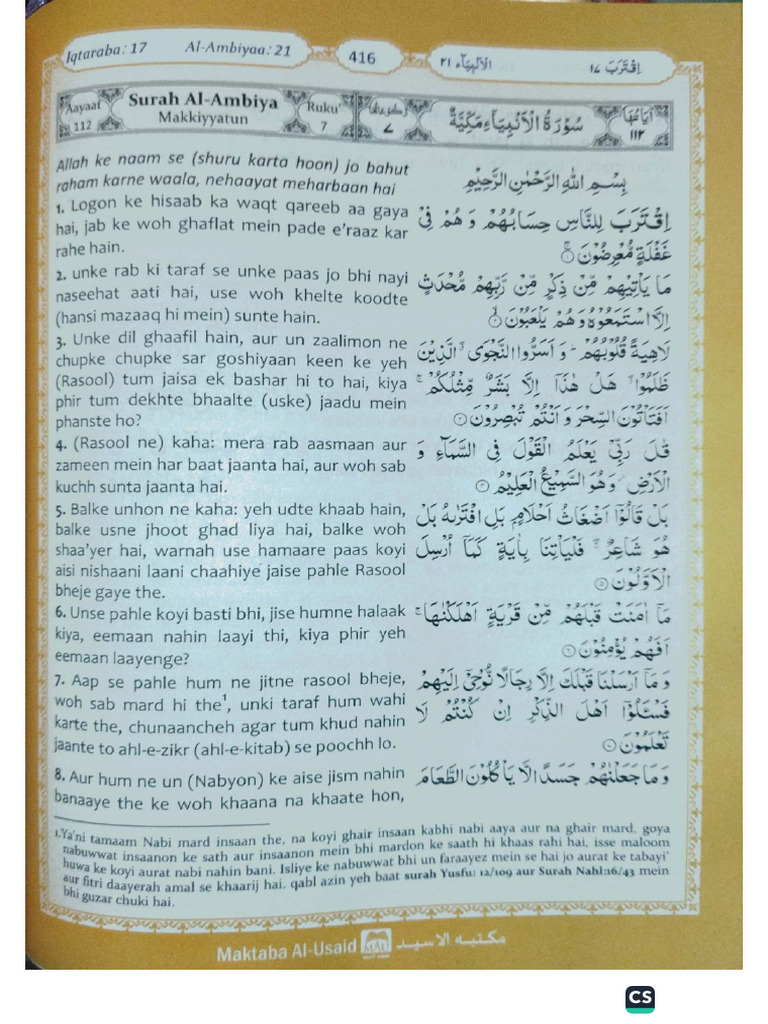 Iqtaraba: 17 Al-Ambiyaa: 21 416 الأنبياء ٢١ اقترب ١٧
Aayaat 112
Surah Al-Ambiya
Makkiyyatun
Ruku' 7
سُوْرَةُ الْاَنْۢبِيَآءِ مَكِّيَّةٌ
اٰيَاتُهَا ١١٢
Allah ke naam se (shuru karta hoon) jo bahut
raham karne waala, nehaayat meharbaan hai
1. Logon ke hisaab ka waqt qareeb aa gaya
hai, jab ke woh ghaflat mein pade e'raaz kar
rahe hain.
2. unke rab ki taraf se unke paas jo bhi nayi
naseehat aati hai, use woh khelte koodte
(hansi mazaaq hi mein) sunte hain.
3. Unke dil ghaafil hain, aur un zaalimon ne
chupke chupke sar goshiyaan keen ke yeh
(Rasool) tum jaisa ek bashar hi to hai, kiya
phir tum dekhte bhaalte (uske) jaadu mein
phanste ho?
4. (Rasool ne) kaha: mera rab aasmaan aur
zameen mein har baat jaanta hai, aur woh sab
kuchh sunta jaanta hai.
5. Balke unhon ne kaha: yeh udte khaab hain,
balke usne jhoot ghad liya hai, balke woh
shaa'yer hai, warnah use hamaare paas koyi
aisi nishaani laani chaahiye jaise pahle Rasool
bheje gaye the.
6. Unse pahle koyi basti bhi, jise humne halaak
kiya, eemaan nahin laayi thi, kiya phir yeh
eemaan laayenge?
7. Aap se pahle hum ne jitne rasool bheje,
woh sab mard hi the¹, unki taraf hum wahi
karte the, chunaancheh agar tum khud nahin
jaante to ahl-e-zikr (ahl-e-kitab) se poochh lo.
8. Aur hum ne un (Nabyon) ke aise jism nahin
banaaye the ke woh khaana na khaate hon,
بِسْمِ اللّٰهِ الرَّحْمٰنِ الرَّحِيْمِ
اِقْتَرَبَ لِلنَّاسِ حِسَابُهُمْ وَ هُمْ فِيْ
غَفْلَةٍ مُّعْرِضُوْنَ ۚ
مَا يَاْتِيْهِمْ مِّنْ ذِكْرٍ مِّنْ رَّبِّهِمْ مُّحْدَثٍ
اِلَّا اسْتَمَعُوْهُ وَ هُمْ يَلْعَبُوْنَ ۙ
لَاهِيَةً قُلُوْبُهُمْ ۚ وَ اَسَرُّوا النَّجْوَى ۖ الَّذِيْنَ
ظَلَمُوْا ۖ هَلْ هٰذَاۤ اِلَّا بَشَرٌ مِّثْلُكُمْ ۚ
اَفَتَاْتُوْنَ السِّحْرَ وَ اَنْتُمْ تُبْصِرُوْنَ
قٰلَ رَبِّيْ يَعْلَمُ الْقَوْلَ فِي السَّمَآءِ وَ
الْاَرْضِ ۚ وَ هُوَ السَّمِيْعُ الْعَلِيْمُ
بَلْ قَالُوْۤا اَضْغَاثُ اَحْلَامٍۭ بَلِ افْتَرٰىهُ بَلْ
هُوَ شَاعِرٌ ۚ فَلْيَاْتِنَا بِاٰيَةٍ كَمَاۤ اُرْسِلَ
الْاَوَّلُوْنَ
مَاۤ اٰمَنَتْ قَبْلَهُمْ مِّنْ قَرْيَةٍ اَهْلَكْنٰهَا ۚ
اَفَهُمْ يُؤْمِنُوْنَ
وَ مَاۤ اَرْسَلْنَا قَبْلَكَ اِلَّا رِجَالًا نُّوْحِيْۤ اِلَيْهِمْ
فَسْـَٔلُوْۤا اَهْلَ الذِّكْرِ اِنْ كُنْتُمْ لَا
تَعْلَمُوْنَ
وَ مَا جَعَلْنٰهُمْ جَسَدًا لَّا يَاْكُلُوْنَ الطَّعَامَ
1.Ya'ni tamaam Nabi mard insaan the, na koyi ghair insaan kabhi nabi aaya aur na ghair mard, goya
nabuwwat insaanon ke sath aur insaanon mein bhi mardon ke saath hi khaas rahi hai, isse maloom
huwa ke koyi aurat nabi nahin bani. Isliye ke nabuwwat bhi un faraayez mein se hai jo aurat ke tabayi'
aur fitri daayerah amal se khaarij hai. qabl azin yeh baat surah Yusfu: 12/109 aur Surah Nahl:16/43 mein
bhi guzar chuki hai.
Maktaba Al-Usaid MAU مكتبه الاسيد
CS